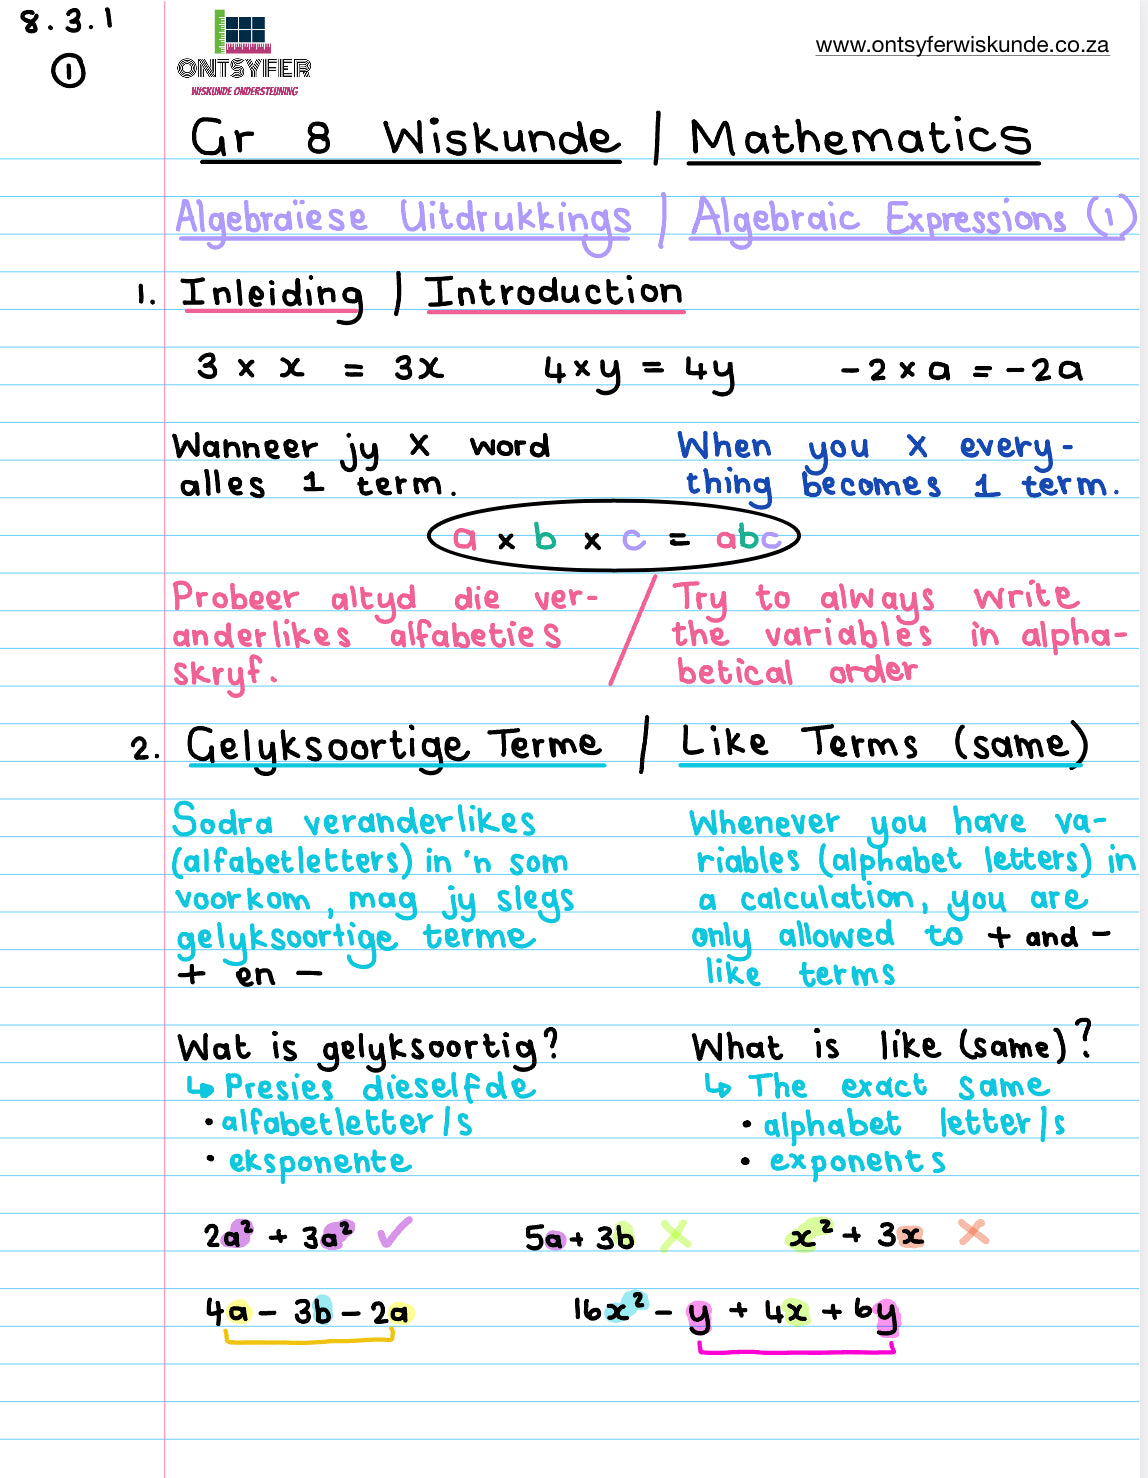 8.3.1
1
ONTSYFER
WISKUNDE ONDERSTEUNING
www.ontsyferwiskunde.co.za
Gr 8 Wiskunde | Mathematics
Algebraïese Uitdrukkings | Algebraic Expressions (1)
1. Inleiding | Introduction
3 × x = 3x 4×y = 4y -2 × a = -2a
Wanneer jy X word
alles 1 term.
When you X every-
thing becomes 1 term.
a × b × c = abc
Probeer altyd die ver-
anderlikes alfabeties
skryf.
/
Try to always write
the variables in alpha-
betical order
2. Gelyksoortige Terme | Like Terms (same)
Sodra veranderlikes
(alfabetletters) in 'n som
voorkom, mag jy slegs
gelyksoortige terme
+ en -
Whenever you have va-
riables (alphabet letters) in
a calculation, you are
only allowed to + and -
like terms
Wat is gelyksoortig?
↳ Presies dieselfde
• alfabetletter/s
• eksponente
What is like (same)?
↳ The exact same
• alphabet letter/s
• exponents
2a² + 3a² ✓ 5a + 3b ✗ x² + 3x ✗
4a - 3b - 2a 16x² - y + 4x + 6y